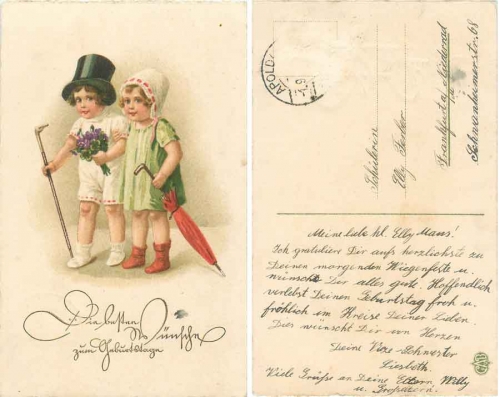 Die besten Wünsche
zum Geburtstage
APOLDA
Schülerin
Elly
Frankfurt a/
Schwanheimerstr. 68
Meine liebe kl. Elly Maus!
Ich gratuliere Dir aufs herzlichste zu
Deinem morgenden Wiegenfeste u.
wünsche Dir alles gute. Hoffendlich
verlebst Deinen Geburtstag froh u.
fröhlich im Kreise Deiner Lieben.
Dies wünscht Dir von Herzen
Deine Vize-Schwester
Liesbeth.
Viele Grüße an Deine Eltern, Willy
u. Großeltern.